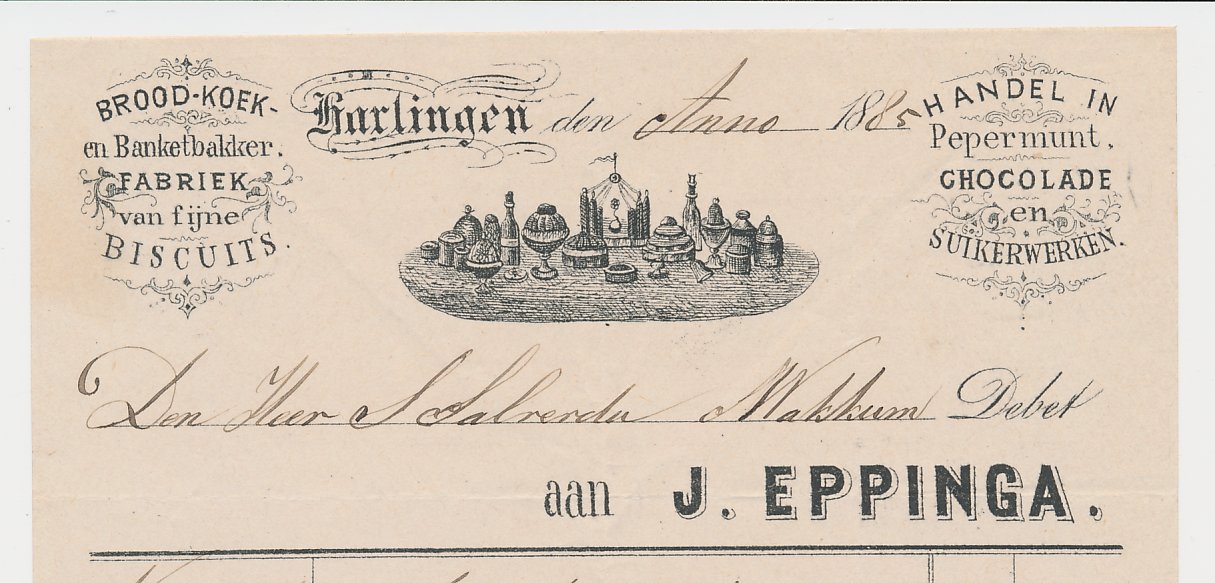 BROOD-KOEK-
en Banketbakker.
FABRIEK
van fijne
BISCUITS.
Harlingen den Anno 1885
HANDEL IN
Pepermunt,
CHOCOLADE
en
SUIKERWERKEN.
Den Heer S Salverda Makkum Debet
aan J. EPPINGA.